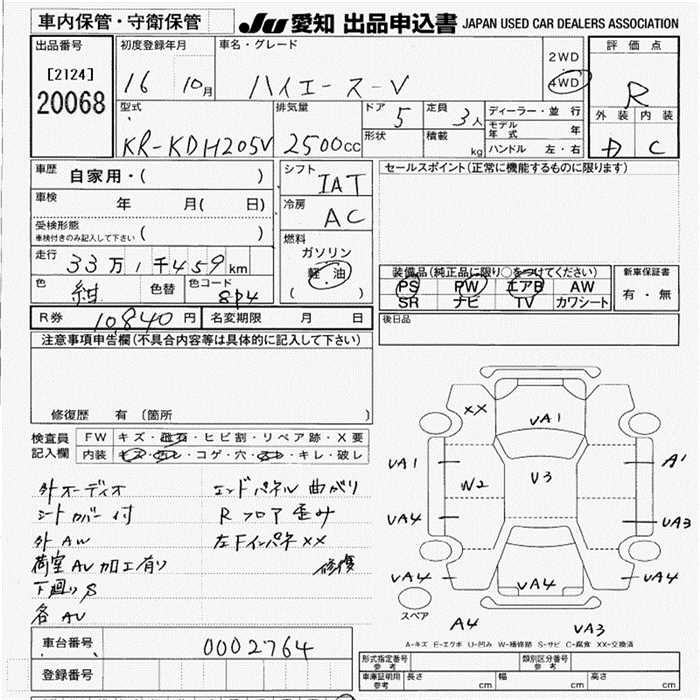 車内保管・守衛保管
JU 愛知 出品申込書 JAPAN USED CAR DEALERS ASSOCIATION
出品番号
[2124]
20068
初度登録年月
16 10月
車名・グレード
ハイエース-V
2WD
4WD
評価点
R
外装 内装
D C
型式
KR-KDH205V
排気量
2500cc
ドア 5
定員 3人
形状
積載 kg
ディーラー・並行
モデル年式 年
ハンドル 左・右
車歴 自家用・( )
車検 年 月( 日)
受検形態
車検付きのみ記入して下さい ( )
走行 33万1千459km
色 紺 色替 色コード 8P4
シフト IAT
冷房 AC
燃料
ガソリン
軽・油
( )
セールスポイント(正常に機能するものに限ります)
装備品(純正品に限り○をつけてください)
PS PW エアB AW
SR ナビ TV カワシート
新車保証書
有・無
R券 10,840円 名変期限 月 日
後日品
注意事項申告欄(不具合内容等は具体的に記入して下さい)
修復歴 有 〔箇所 〕
検査員記入欄
FW キズ・飛石・ヒビ割・リペア跡・X要
内装 キズ・汚レ・コゲ・穴・キレ・破レ
外オーディオ
シートカバー付
外AW
荷室AV加工有り
下廻りS
各AV
エンドパネル曲がり
Rフロア歪み
左下インパネXX
修復
XX
VA1
VA1
A1
W2
V3
VA4
VA3
VA4
VA4
VA4
スペア
A4
VA3
A-キズ E-エクボ U-凹み W-補修跡 S-サビ C-腐食 XX-交換済
車台番号 0002764
登録番号
形式指定番号 参考
類別区分番号 参考
車庫証明用 参考 長さ cm 幅 cm 高さ cm